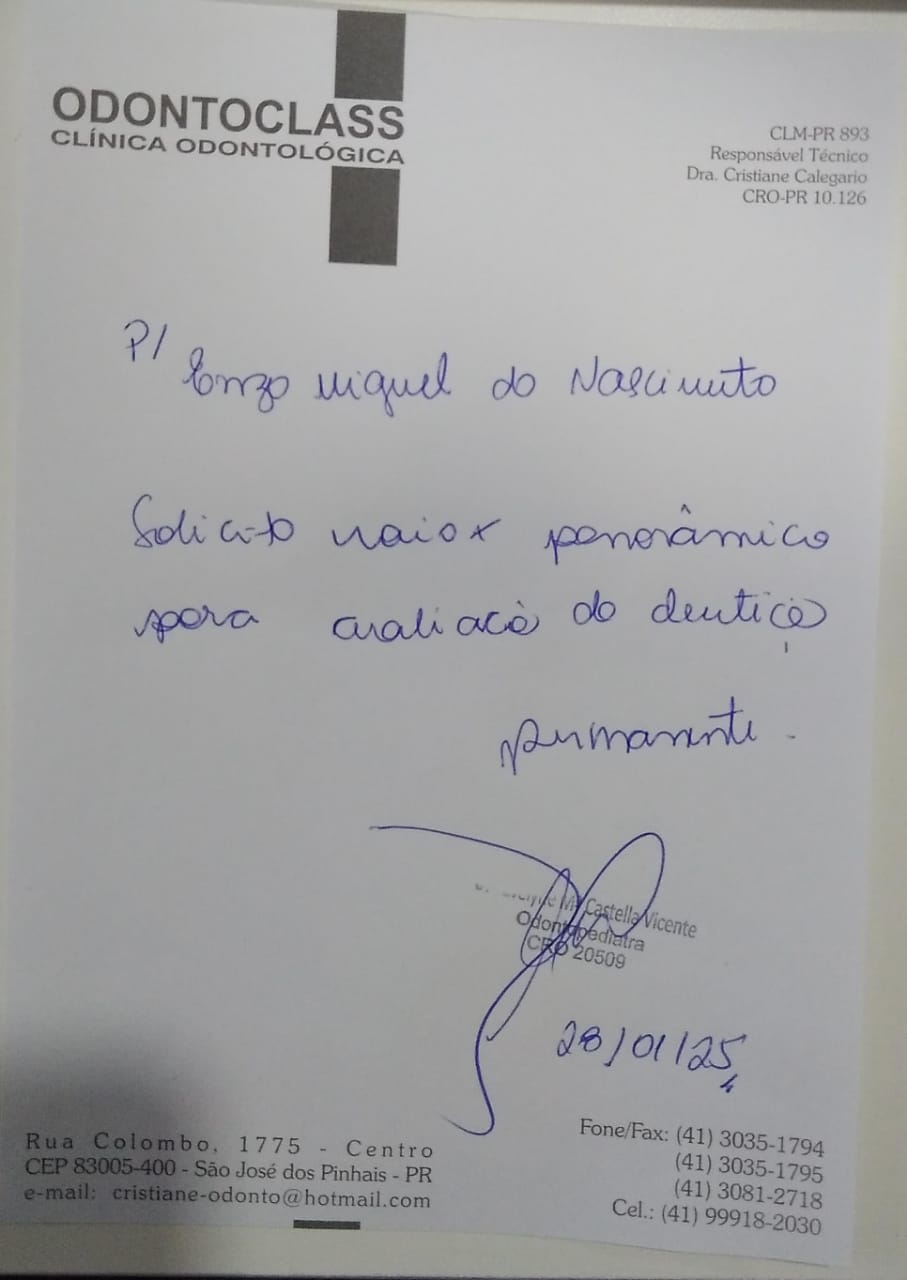 ODONTOCLASS
CLÍNICA ODONTOLÓGICA
CLM-PR 893
Responsável Técnico
Dra. Cristiane Calegario
CRO-PR 10.126
P/ Enzo Miguel do Nascimento
Solicito raio x panorâmico
para avaliação da dentição
permanente.
M. Castella Vicente
Odontopediatra
CRO 20509
28/01/25
Rua Colombo, 1775 - Centro
CEP 83005-400 - São José dos Pinhais - PR
e-mail: cristiane-odonto@hotmail.com
Fone/Fax: (41) 3035-1794
(41) 3035-1795
(41) 3081-2718
Cel.: (41) 99918-2030